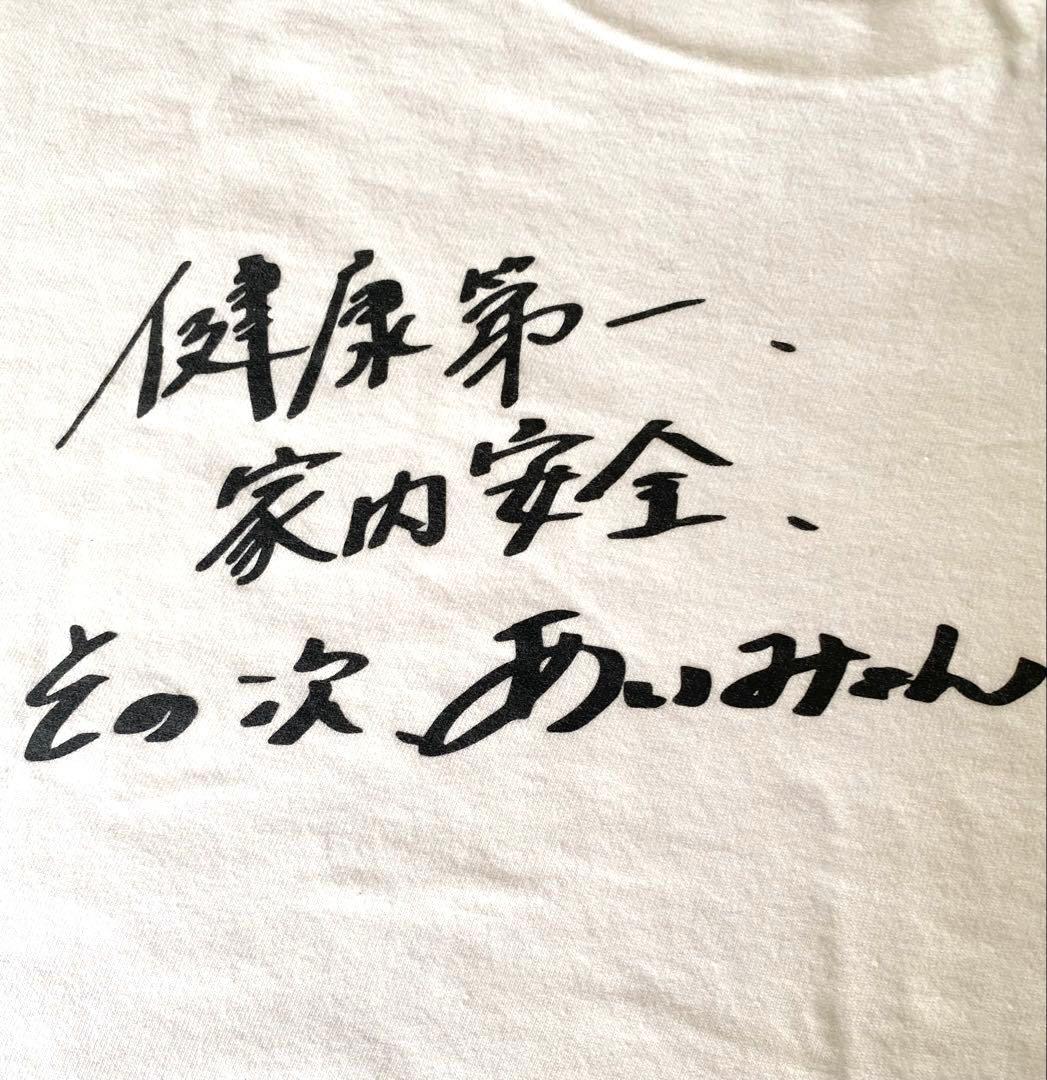 健康第一、
家内安全、
その次、あいみょん